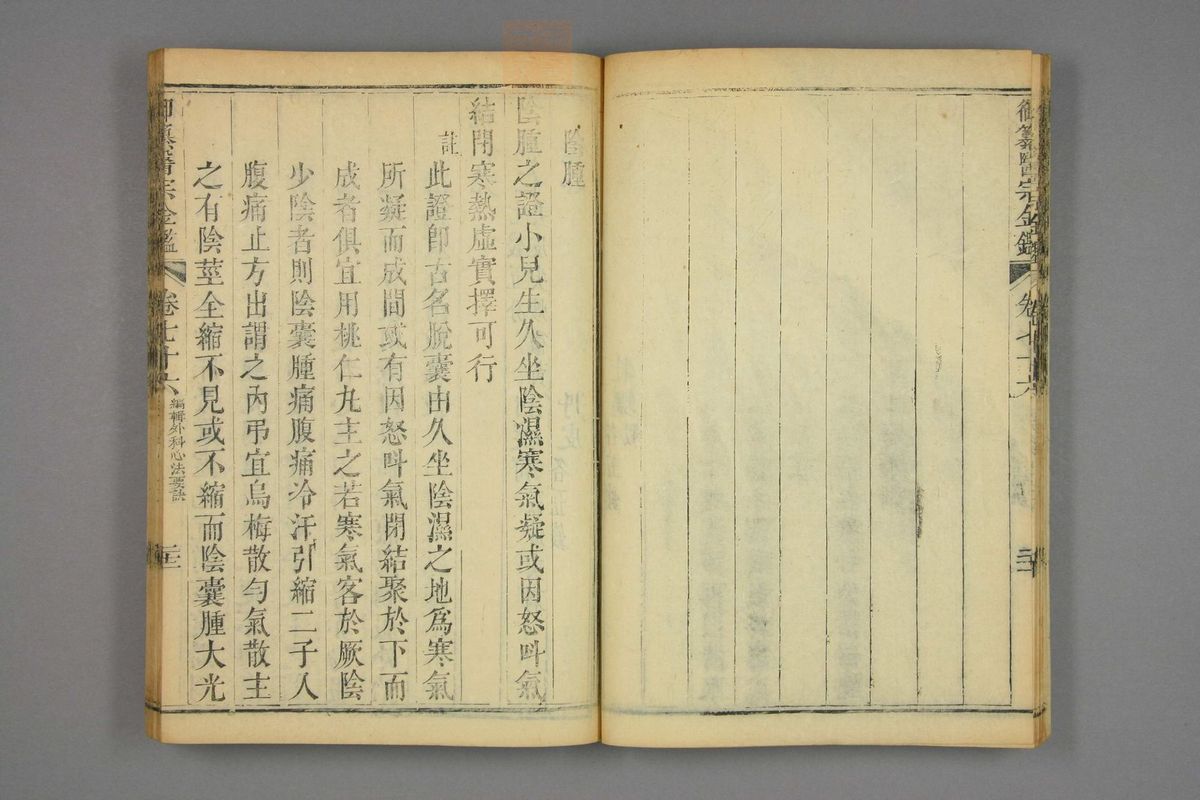 御纂醫宗金鑑 卷七十六
陰腫
陰腫之證小兒生久坐陰濕寒氣凝或因怒叫氣
結閉寒熱虛實擇可行
註此證卽古名脫囊由久坐陰濕之地爲寒氣
所凝而成間或有因怒叫氣閉結聚於下而
成者俱宜用桃仁丸主之若寒氣客於厥陰
少陰者則陰囊腫痛腹痛冷汗引縮二子入
腹痛止方出謂之內弔宜烏梅散勻氣散主
之有陰莖全縮不見或不縮而陰囊腫大光
御纂醫宗金鑑 卷七十六 編輯外科心法要訣 二十二